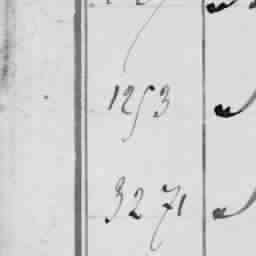 1253
3271